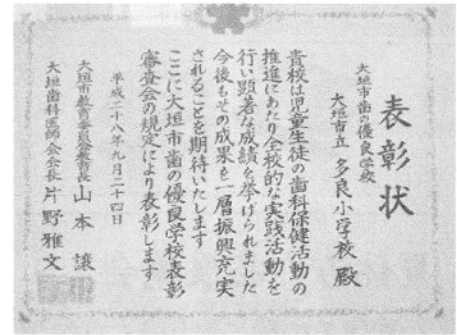 表彰状
大垣市歯の優良学校
大垣市立 多良小学校 殿
貴校は児童生徒の歯科保健活動の
推進にあたり全校的な実践活動を
行い顕著な成績を挙げられました
今後もその成果を一層振興充実
されることを期待いたします
ここに大垣市歯の優良学校表彰
審査会の規定により表彰します
平成二十八年九月二十四日
大垣市教育委員会教育長 山本 譲
大垣歯科医師会会長 片野雅文